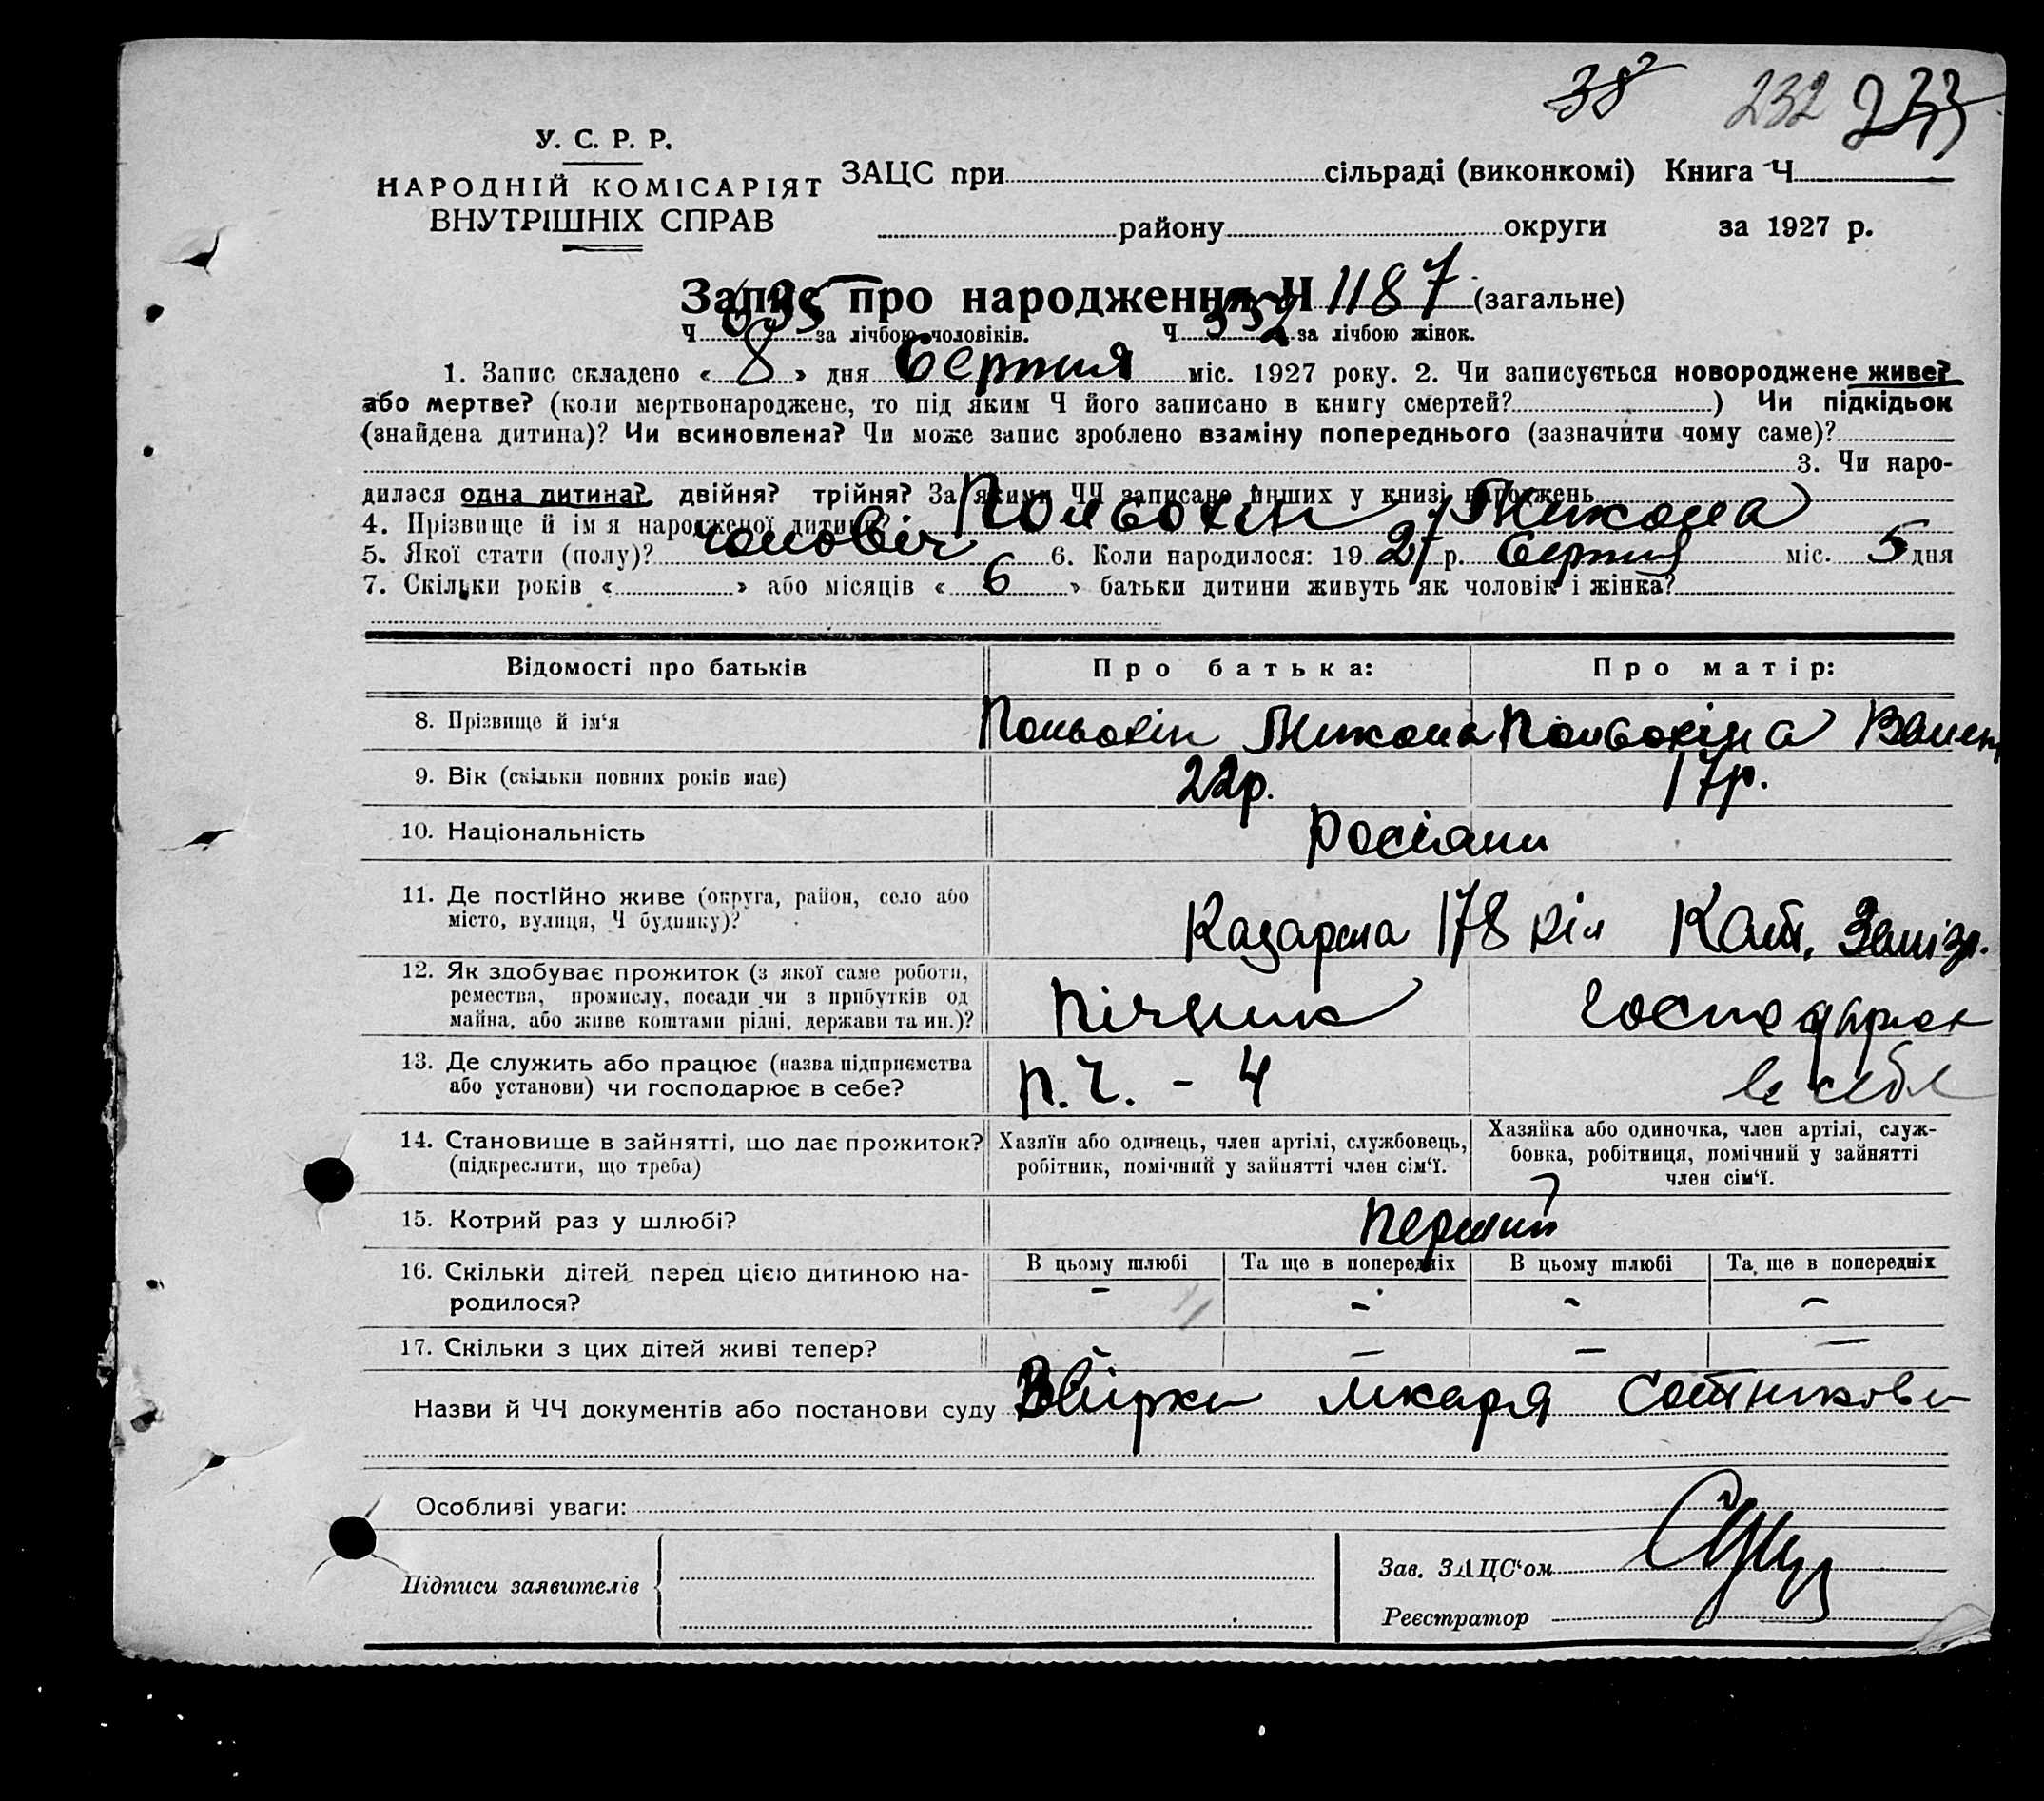 38² 232 233
У. С. Р. Р.
НАРОДНІЙ КОМІСАРІЯТ
ВНУТРІШНІХ СПРАВ
ЗАЦС при сільраді (виконкомі) Книга Ч
району округи за 1927 р.
Запис про народження Ч 1187 (загальне)
Ч 635 за лічбою чоловіків. Ч 552 за лічбою жінок.
1. Запис складено « 8 » дня Серпня міс. 1927 року. 2. Чи записується новороджене живе?
або мертве? (коли мертвонароджене, то під яким Ч його записано в книгу смертей? ) Чи підкідьок
(знайдена дитина)? Чи всиновлена? Чи може запис зроблено взаміну попереднього (зазначити чому саме)?
3. Чи наро-
дилася одна дитина? двійня? трійня? За якими ЧЧ записано инших у книзі нарожень
4. Прізвище й ім я народженої дитини? Польохін Микола
5. Якої стати (полу)? чоловіч 6. Коли народилося: 19 27 р. Серпня міс. 5 дня
7. Скільки років « » або місяців « 6 » батьки дитини живуть як чоловік і жінка?
Відомості про батьків Про батька: Про матір:
8. Прізвище й ім‘я Польохін Микола Польохіна Валент
9. Вік (скільки повних років має) 22р. 17р.
10. Національність Росіяни
11. Де постійно живе (округа, район, село або
місто, вулиця, Ч будинку)? Казарма 178 кіл Кат. Залізн.
12. Як здобуває прожиток (з якої саме роботи,
ремества, промислу, посади чи з прибутків од
майна, або живе коштами рідні, держави та ин.)? пічник господарює
13. Де служить або працює (назва підприємства
або установи) чи господарює в себе? П.Ч. - 4 в себе
14. Становище в зайнятті, що дає прожиток?
(підкреслити, що треба)
Хазяїн або одинець, член артілі, службовець,
робітник, помічний у зайнятті член сім‘ї.
Хазяйка або одиночка, член артілі, служ-
бовка, робітниця, помічний у зайнятті
член сім‘ї.
15. Котрий раз у шлюбі? перший
16. Скільки дітей перед цією дитиною на-
родилося?
В цьому шлюбі Та ще в попередніх В цьому шлюбі Та ще в попередніх
- - - -
17. Скільки з цих дітей живі тепер? - - - -
Назви й ЧЧ документів або постанови суду лікаря Сотникова
Особливі уваги:
Підписи заявителів
Зав. ЗАЦС‘ом
Реєстратор